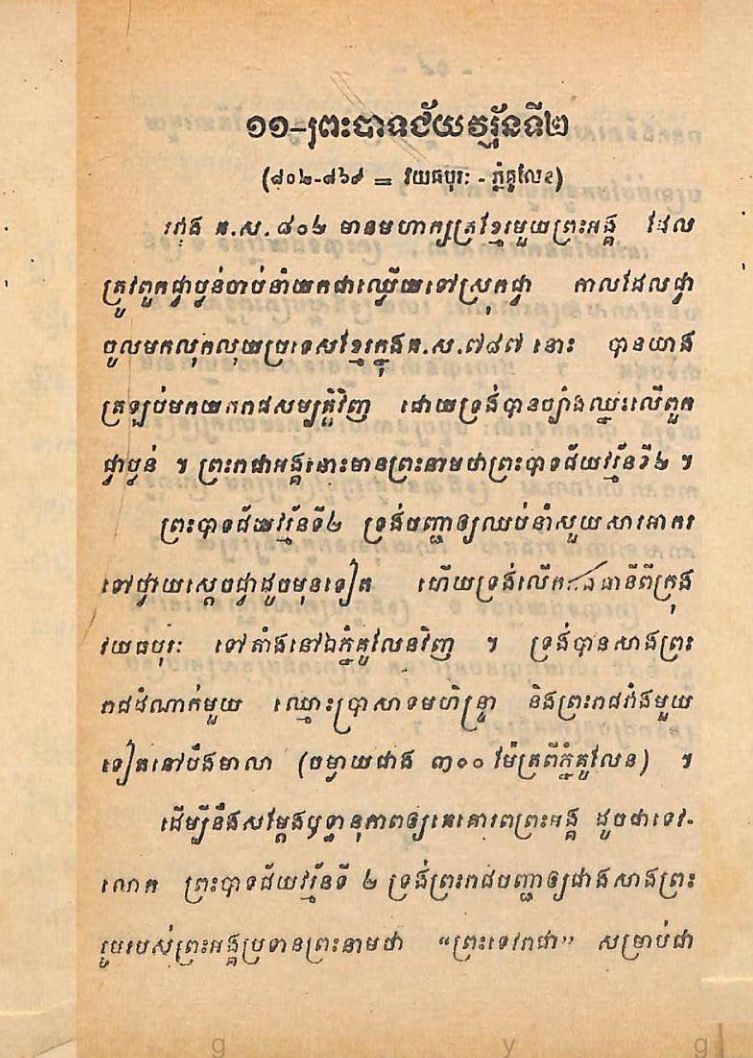 ១១-ព្រះបាទជ័យវរ្ម័នទី២
(៨០២-៨៦៩ = វយធបុរៈ - ភ្នំគូលែន)
រវាង គ.ស. ៨០២ មានមហាក្សត្រខ្មែរមួយព្រះអង្គ ដែល
ត្រូវពួកជ្វាប្វន់ចាប់នាំយកជាឈ្លើយទៅស្រុកជ្វា កាលដែលជ្វា
ចូលមកលុកលុយប្រទេសខ្មែរក្នុងគ.ស.៧៨៧ នោះ បានយាង
ត្រឡប់មកយករាជសម្បត្តិវិញ ដោយទ្រង់បានច្បាំងឈ្នះលើពួក
ជ្វាប្វន់ ។ ព្រះរាជាអង្គនោះមានព្រះនាមថាព្រះបាទជ័យវរ្ម័នទី២ ។
ព្រះបាទជ័យវរ្ម័នទី២ ទ្រង់បញ្ជាឲ្យឈប់នាំសួយសារអាករ
ទៅថ្វាយស្ដេចជ្វាដូចមុនទៀត ហើយទ្រង់លើករាជធានីពីក្រុង
វយធបុរៈ ទៅតាំងនៅឯភ្នំគូលែនវិញ ។ ទ្រង់បានសាងព្រះ
រាជដំណាក់មួយ ឈ្មោះប្រាសាទមហិន្ទ្រា និងព្រះរាជវាំងមួយ
ទៀតនៅបឹងមាលា (ចម្ងាយជាង ៣០០ ម៉ែត្រពីភ្នំគូលែន) ។
ដើម្បីនឹងសម្ដែងឫទ្ធានុភាពឲ្យគេគោរពព្រះអង្គ ដូចជាទេវ-
លោក ព្រះបាទជ័យវរ្ម័នទី ២ ទ្រង់ព្រះរាជបញ្ជាឲ្យជាងសាងព្រះ
រូបរបស់ព្រះអង្គប្រទានព្រះនាមថា “ព្រះទេវរាជា” សម្រាប់ជា
g y g